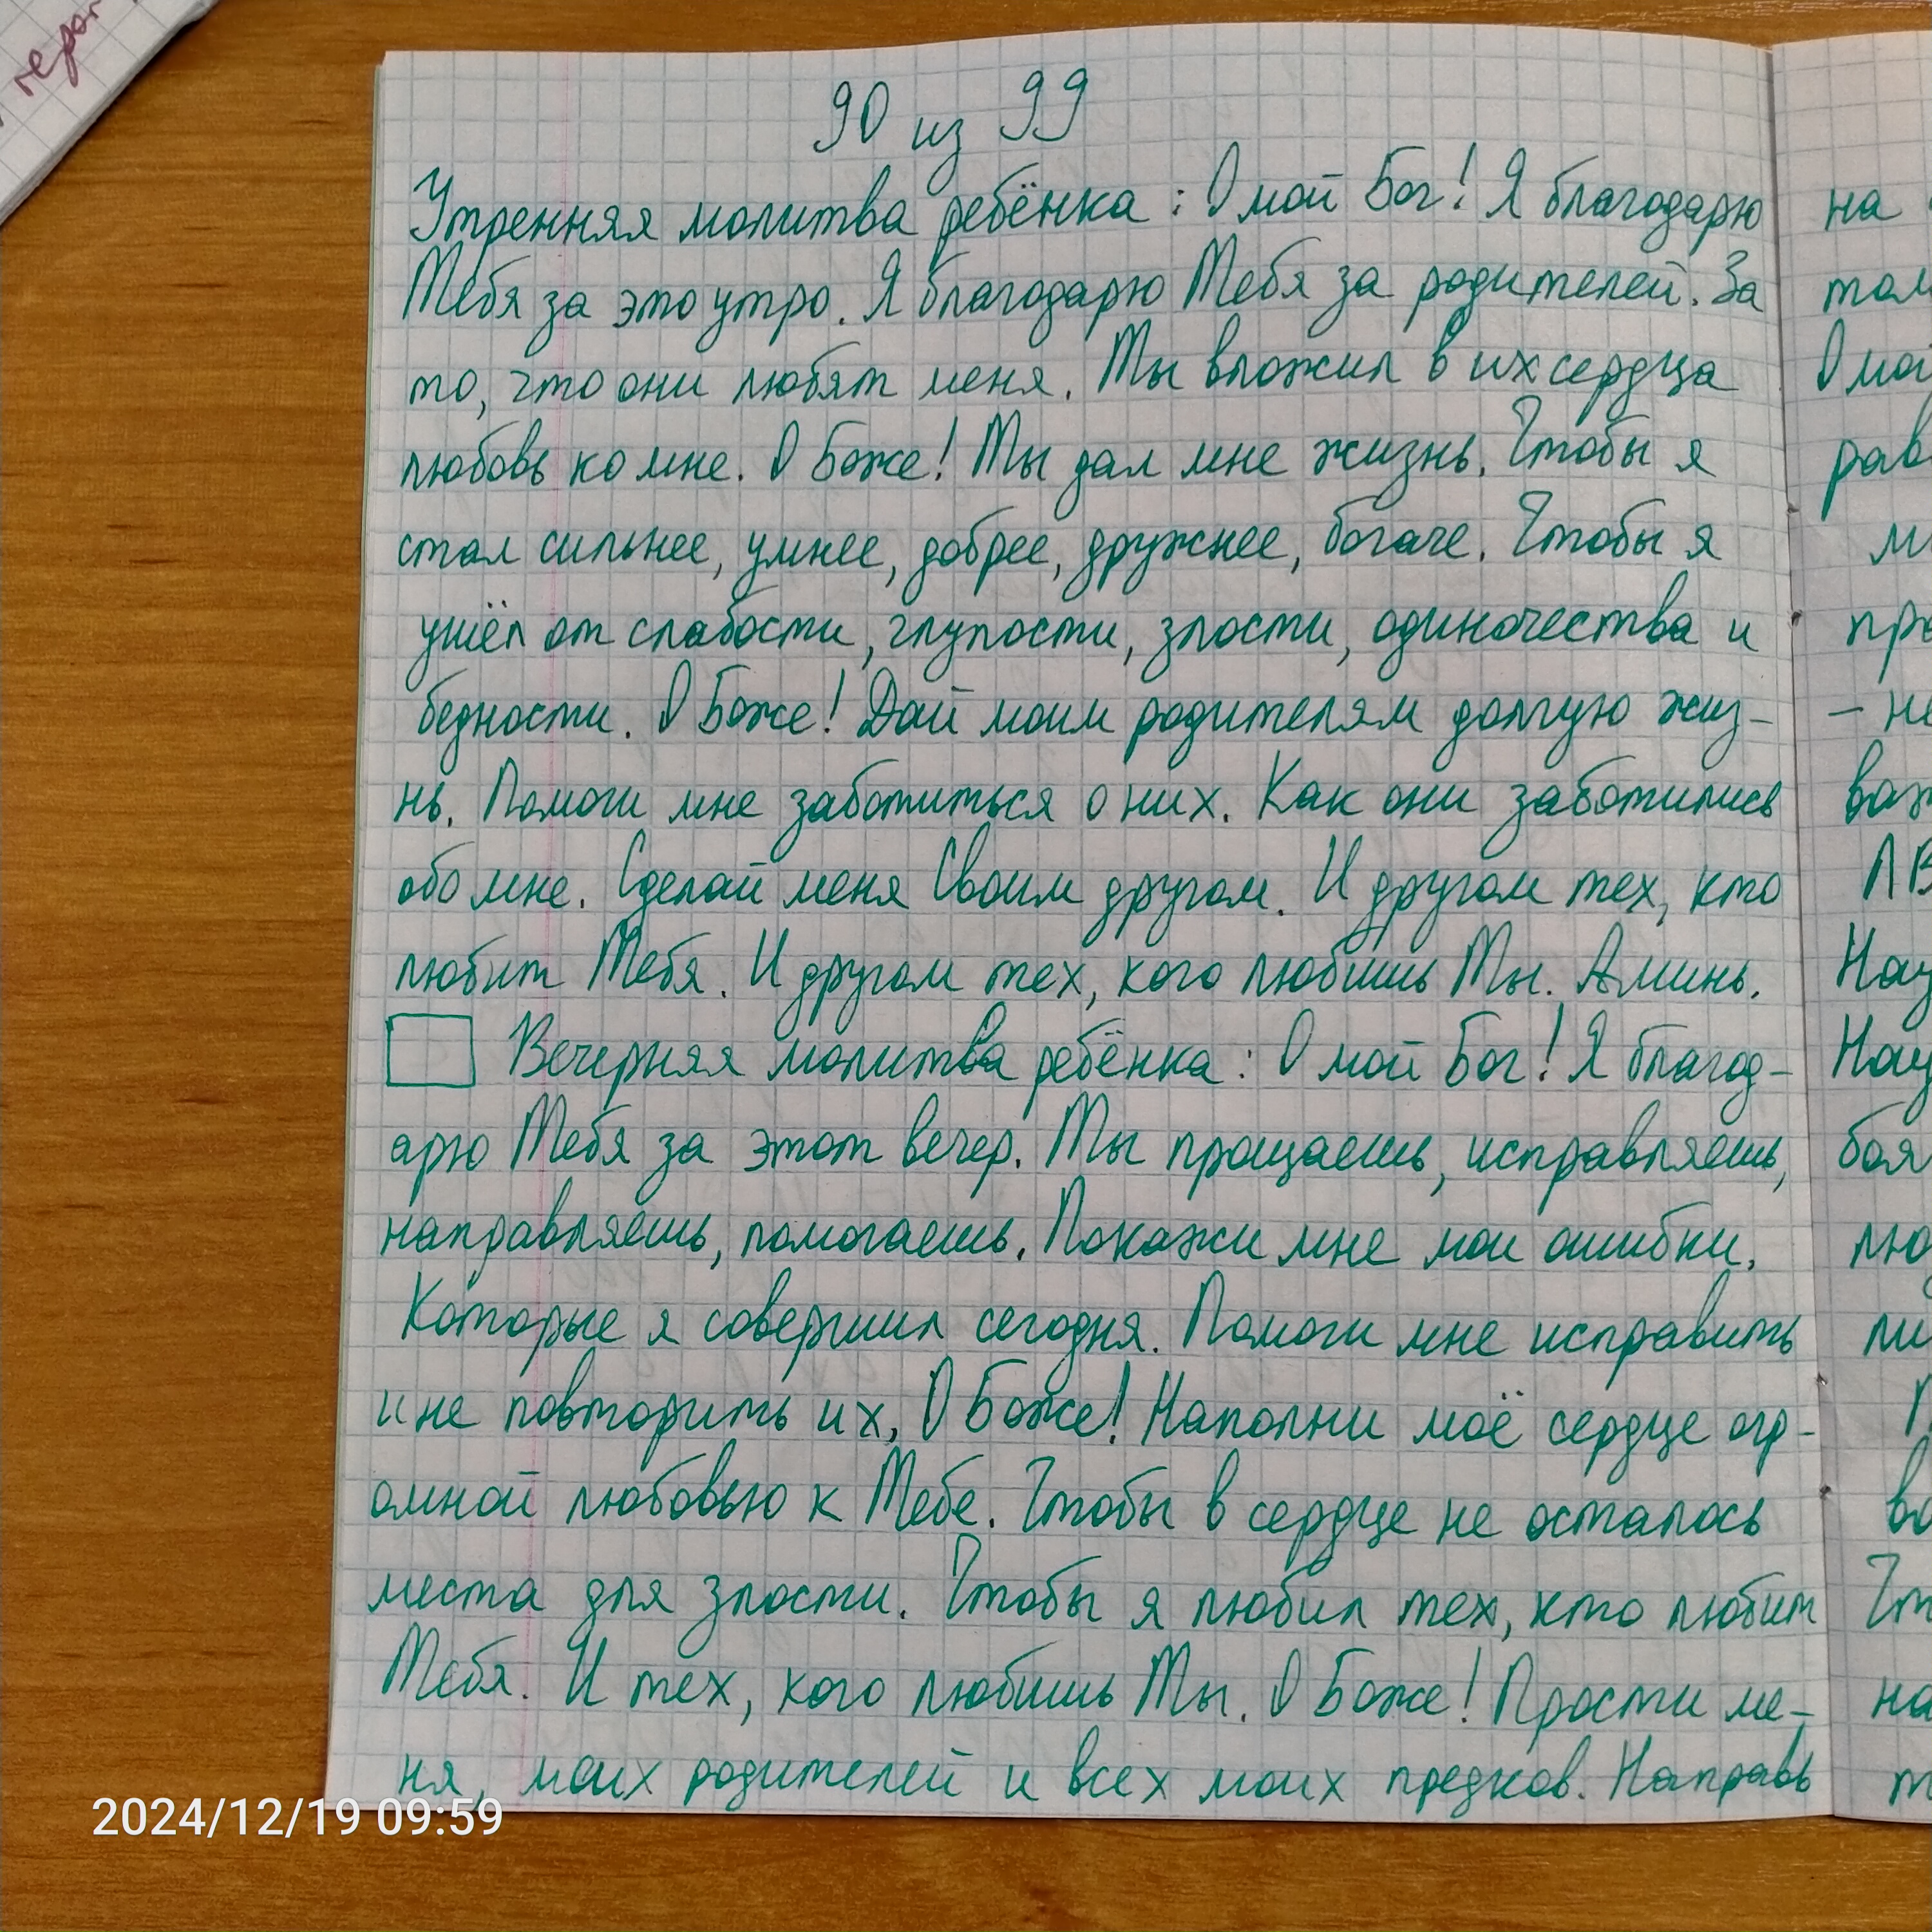 90 из 99
Утренняя молитва ребёнка: О мой Бог! Я благодарю
Тебя за это утро. Я благодарю Тебя за родителей. За
то, что они любят меня. Ты вложил в их сердца
любовь ко мне. О Боже! Ты дал мне жизнь. Чтобы я
стал сильнее, умнее, добрее, дружнее, богаче. Чтобы я
ушёл от слабости, глупости, злости, одиночества и
бедности. О Боже! Дай моим родителям долгую жиз-
нь. Помоги мне заботиться о них. Как они заботились
обо мне. Сделай меня Своим другом. И другом тех, кто
любит Тебя. И другом тех, кого любишь Ты. Аминь.
Вечерняя молитва ребёнка: О мой Бог! Я благод-
арю Тебя за этот вечер. Ты прощаешь, исправляешь,
направляешь, помогаешь. Покажи мне мои ошибки.
Которые я совершил сегодня. Помоги мне исправить
и не повторить их. О Боже! Наполни моё сердце огр-
омной любовью к Тебе. Чтобы в сердце не осталось
места для злости. Чтобы я любил тех, кто любит
Тебя. И тех, кого любишь Ты. О Боже! Прости ме-
ня, моих родителей и всех моих предков. Направь
на
2024/12/19 09:59